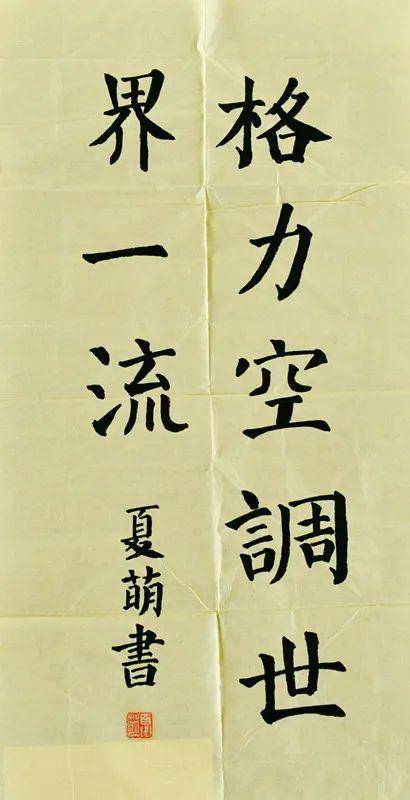 格力空調世
界一流
夏萌書